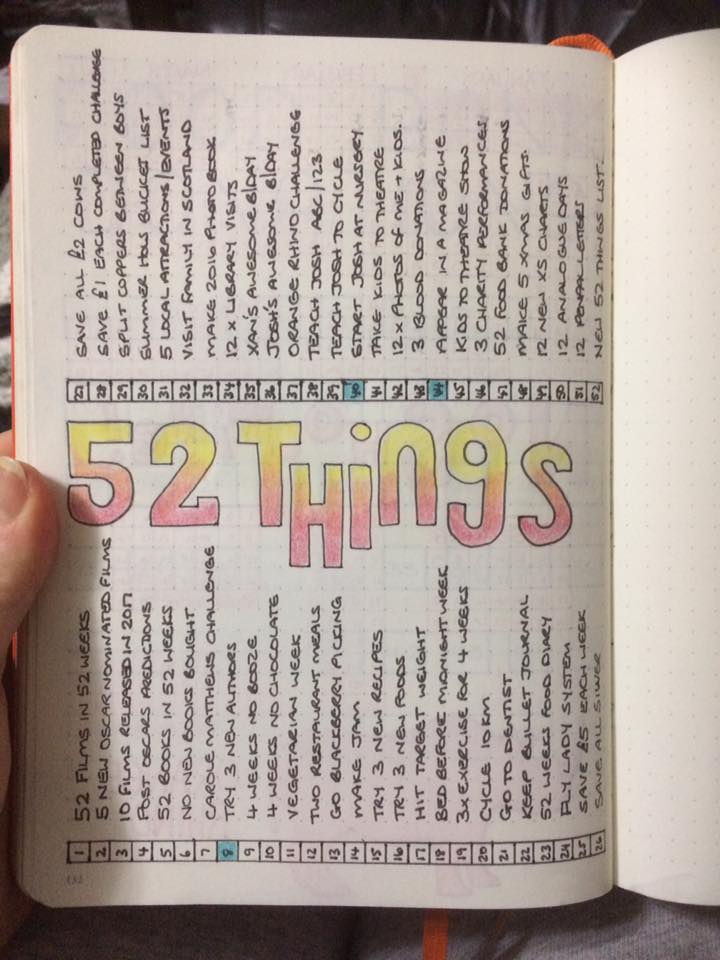 52 THiNgS
1 52 FILMS IN 52 WEEKS
2 5 NEW OSCAR NOMINATED FILMS
3 10 FILMS RELEASED IN 2017
4 POST OSCARS PREDICTIONS
5 52 BOOKS IN 52 WEEKS
6 NO NEW BOOKS BOUGHT
7 CAROLE MATTHEWS CHALLENGE
8 TRY 3 NEW AUTHORS
9 4 WEEKS NO BOOZE
10 4 WEEKS NO CHOCOLATE
11 VEGETARIAN WEEK
12 TWO RESTAURANT MEALS
13 GO BLACKBERRY PICKING
14 MAKE JAM
15 TRY 3 NEW RECIPES
16 TRY 3 NEW FOODS
17 HIT TARGET WEIGHT
18 BED BEFORE MIDNIGHT WEEK
19 3x EXERCISE FOR 4 WEEKS
20 CYCLE 10KM
21 GO TO DENTIST
22 KEEP BULLET JOURNAL
23 52 WEEKS FOOD DIARY
24 FLY LADY SYSTEM
25 SAVE £5 EACH WEEK
26 SAVE ALL SILVER
27 SAVE ALL £2 COINS
28 SAVE £1 EACH COMPLETED CHALLENGE
29 SPLIT COPPERS BETWEEN BOYS
30 SUMMER HOLS BUCKET LIST
31 5 LOCAL ATTRACTIONS/EVENTS
32 VISIT FAMILY IN SCOTLAND
33 MAKE 2016 PHOTOBOOK
34 12 x LIBRARY VISITS
35 XAN'S AWESOME B/DAY
36 JOSH'S AWESOME B/DAY
37 ORANGE RHINO CHALLENGE
38 TEACH JOSH ABC/123
39 TEACH JOSH TO CYCLE
40 START JOSH AT NURSERY
41 TAKE KIDS TO THEATRE
42 12 x PHOTOS OF ME + KIDS.
43 3 BLOOD DONATIONS
44 APPEAR IN A MAGAZINE
45 KIDS TO THEATRE SHOW
46 3 CHARITY PERFORMANCES
47 52 FOOD BANK DONATIONS
48 MAKE 5 XMAS GIFTS.
49 12 NEW XS CHARTS
50 12 ANALOGUE DAYS
51 12 PENPAL LETTERS
52 NEW 52 THINGS LIST.